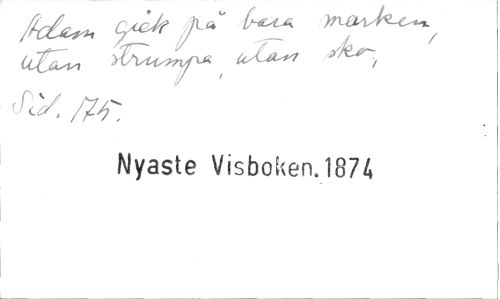 Adam gick på bara marken,
utan strumpa, utan sko,
Sid. 175.
Nyaste Visboken. 1874